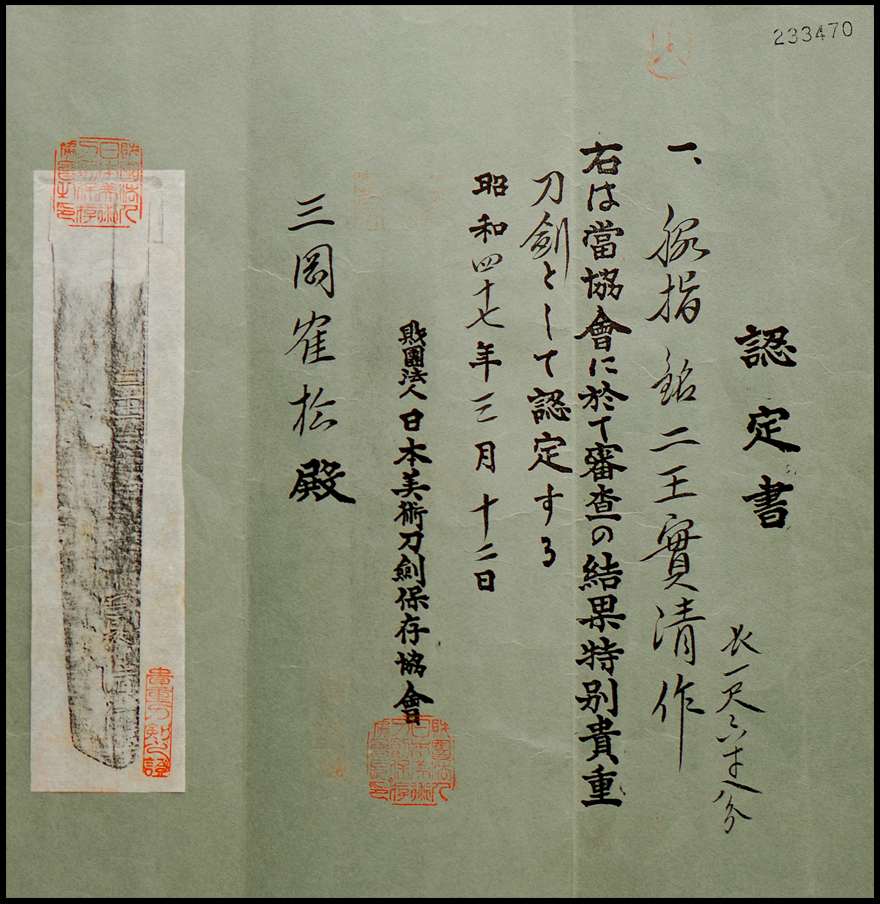 233470
認定書
一、脇指 銘 二王實清作
長一尺六寸八分
右は當協會に於て審査の結果特別貴重
刀劍として認定する
昭和四十七年三月十二日
財團法人日本美術刀劍保存協會
三岡寉松殿